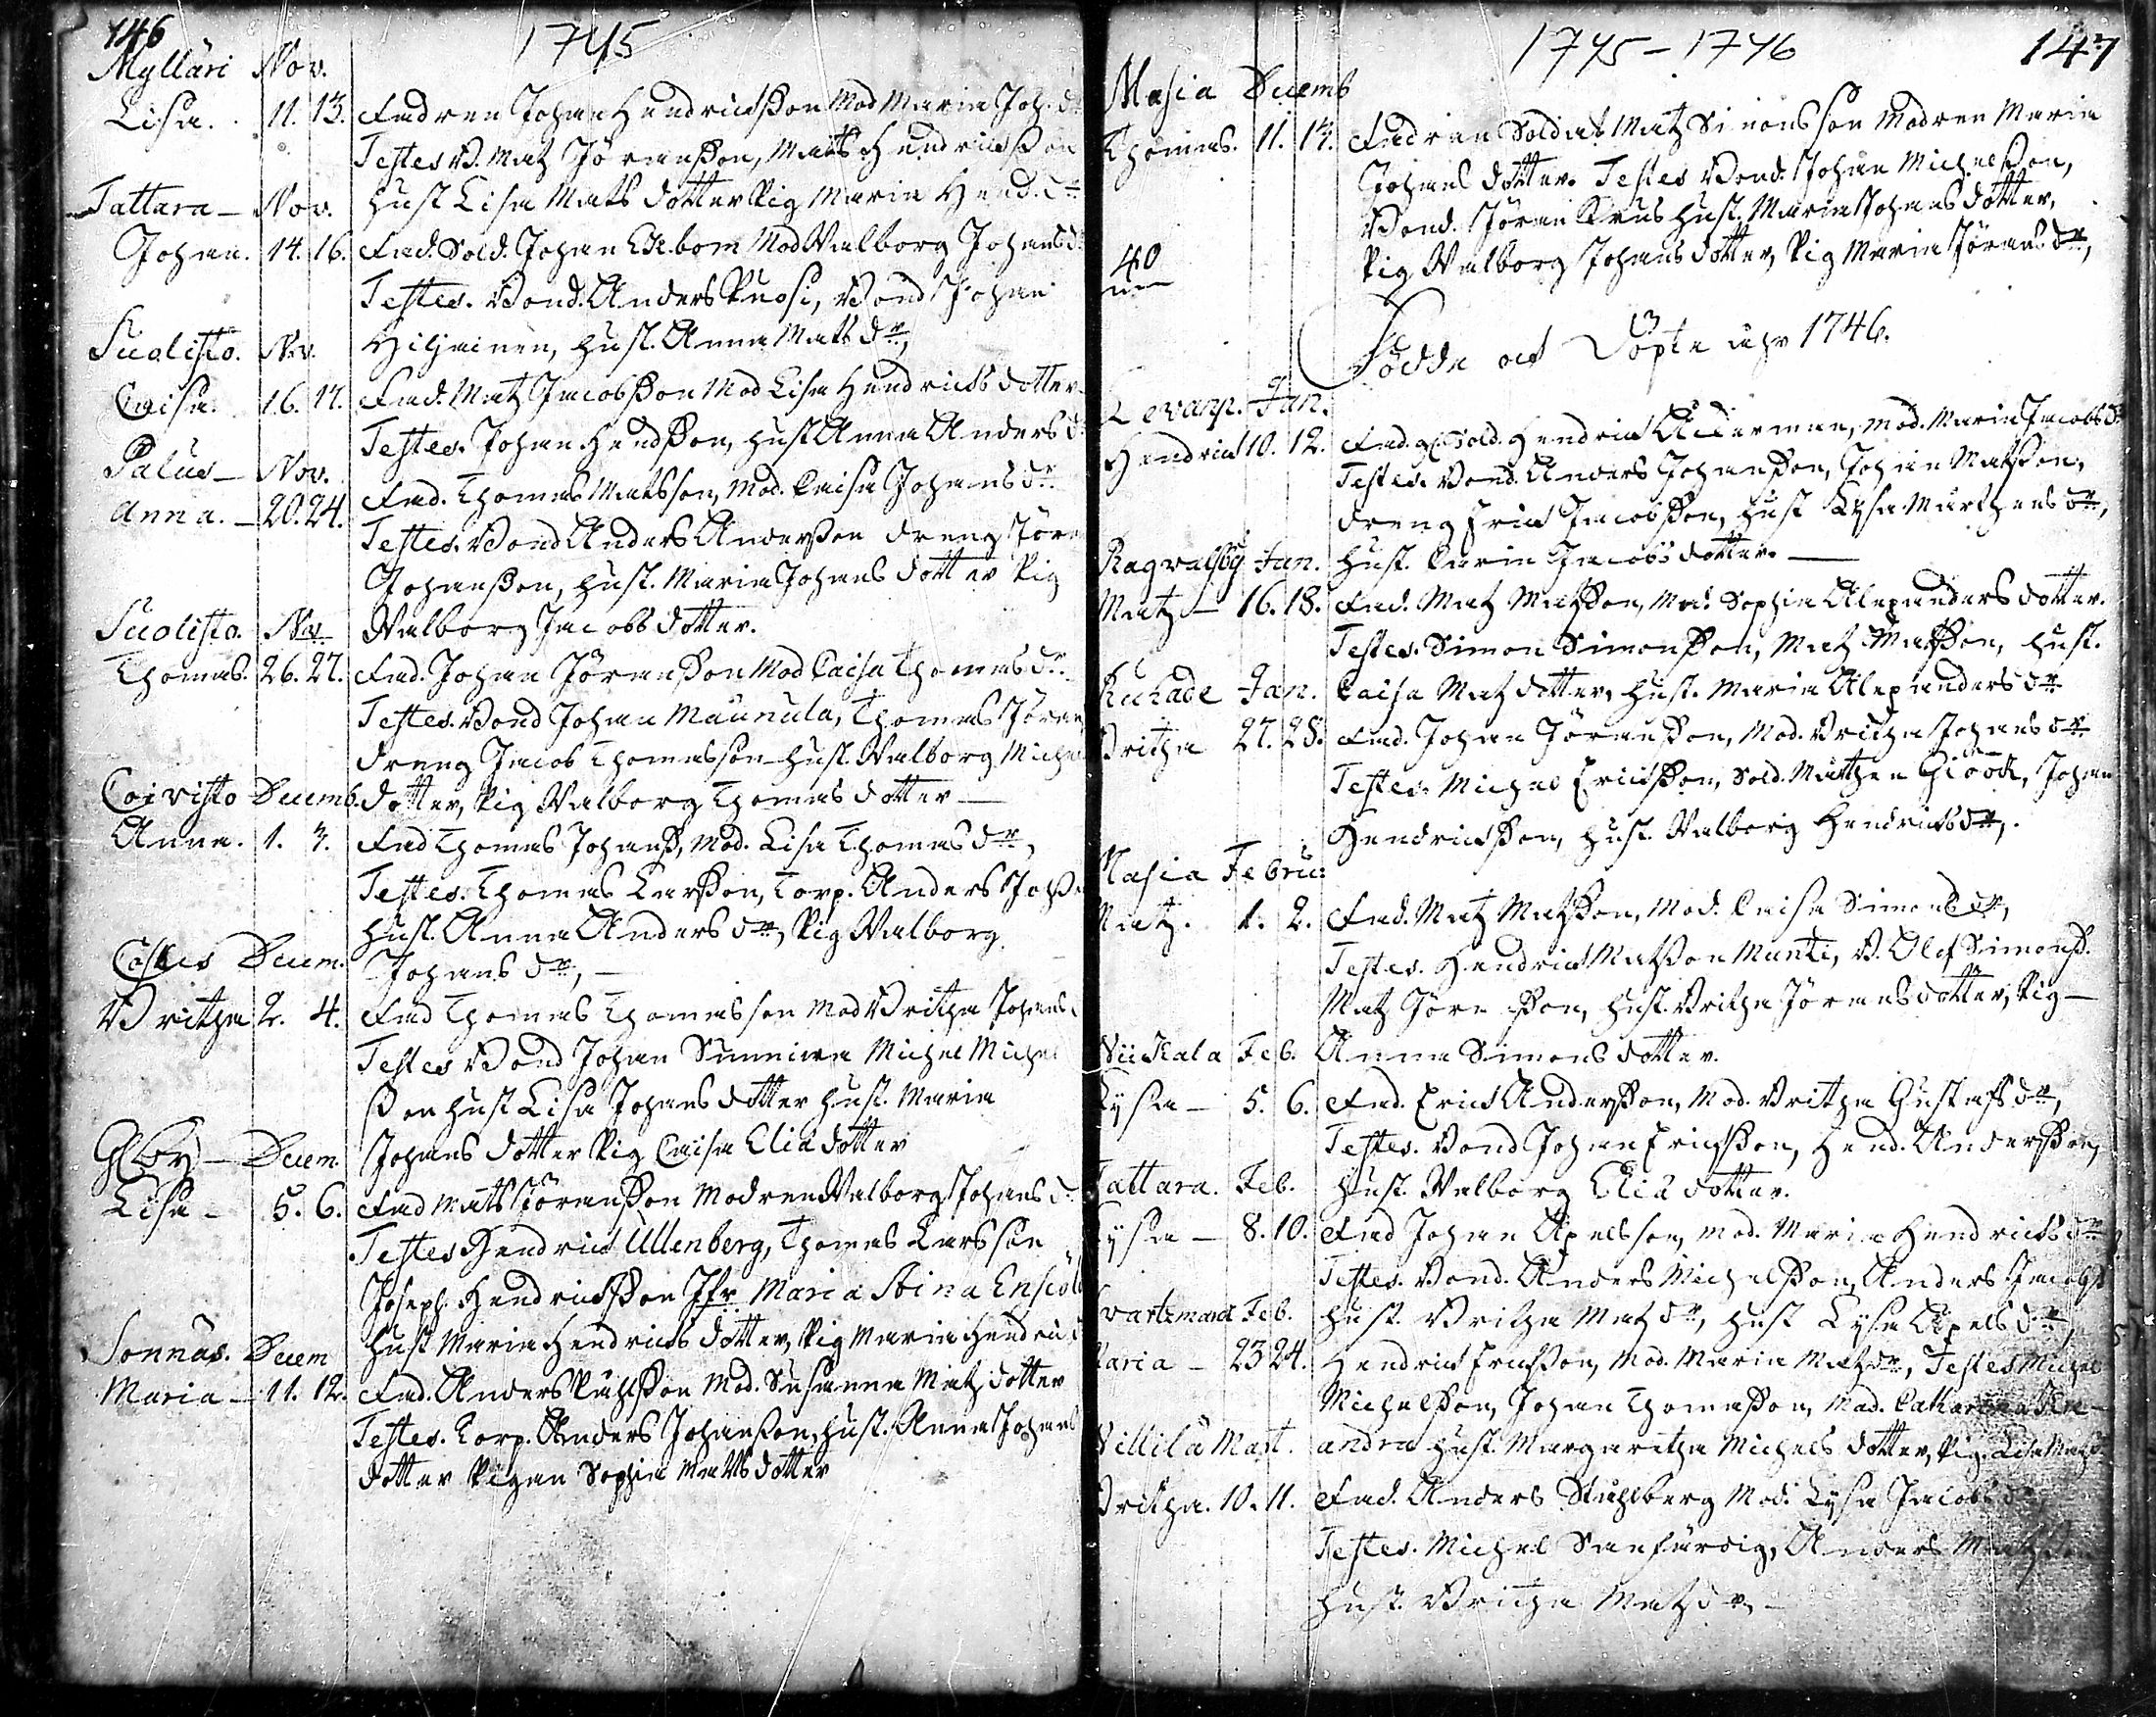 146
1745
Mylläri Nov.
Lisa. 11. 13. Fadren Johan Hendricksson Mod Maria Joh. dr
Testes B. Matz Jöransson, Matts Hendricksson
hust Lisa Matts dotter Pig Maria Hend. dr
Tattara - Nov.
Johan. 14. 16. Fad. Sold. Johan Ekbom Mod Walborg Johansdr
Testes. Bond. Anders Knosi, Bond Johan
Hiljainen, hust. Anna Matts dr,
Suolisto. Nov.
Caisa. 16. 17. Fad. Matz Jacobsson Mod Lisa Hendricks dotter
Testes. Johan Hendsson, hust Anna Anders dr
Palus - Nov.
Anna. - 20. 24. Fad. Thomas Matsson, Mod. Caisa Johans dr
Testes. Bond Anders Andersson dreng Jöran
Johansson, hust. Maria Johans dotter Pig
Walborg Jacobs dotter.
Suolisto. Nov
Thomas. 26. 27. Fad. Johan Jöransson Mod Caisa Thomas dr.
Testes. Bond Johan Maunula, Thomas Jöran
dreng Jacob Thomasson hust. Walborg Michel
dotter, Pig Walborg Thomas dotter
Coivisto Decemb.
Anna. 1. 3. Fad Thomas Johanss, Mod. Lisa Thomas dr,
Testes. Thomas Larsson, Torp. Anders Johss
hust. Anna Anders dr, Pig Walborg
Johans dr, -
Decem.
Britha 2. 4. Fad Thomas Thomasson Mod Britha Johans
Testes Bond Johan Michel Michel
sson hust Lisa Johans dotter hust. Maria
Johans dotter Pig Caisa Elia dotter
Decem.
Lisa - 5. 6. Fad Matts Jöransson Modren Walborg Johans d.
Testes Hendrick Ullenberg, Thomas Larsson
Joseph Hendricksson Jfr Maria Stina
hust Maria Hendricks dotter, Pig Maria Hendric
Sonnäs. Decem
Maria - 11. 12. Fad. Anders Påhlsson Mod. Susanna Matz dotter
Testes. Torp. Anders Johansson, hust. Anna Johans
dotter Pigan Sophia Matts dotter
1745-1746
147
Masia Decemb
Thomas. 11. 13. Fadren Soldat Matz Simonsson Modren Maria
Johans dotter. Testes Bond. Johan Michelsson,
Bond. Jöran hust. Maria Johans dotter,
Pig Walborg Johans dotter, Pig Maria Jörans dr,
40
Födde och Döpte åhr 1746.
Levanp. Jan.
Hendrick 10. 12. Fad. Sold. Hendrick Åkerman, Mod. Maria Jacobs dr
Testes. Bond. Anders Johansson, Johan Matsson,
dreng Erick Jacobsson, hust Lysa Marthens dr,
hust. Carin Jacobs dotter. -
Ragvalsby Jan.
Matz - 16. 18. Fad. Matz Matzson, Mod Sophia Alexanders dotter.
Testes. Simon Simonsson, Matz Matsson, hust.
Caisa Matz dotter, hust. Maria Alexanders dr
Kukade Jan.
Britha 27. 28. Fad. Johan Jöransson, Mod. Britha Johans dr
Testes. Michel Ericksson, Sold. Marthen Giöök, Johan
Hendricksson, hust. Walborg Hendricks dr,.
Masia Febru:
Matz. 1. 2. Fad. Matz Matzson, Mod. Caisa Simons dr,
Testes. Hendrick Matsson Munti, B. Olof Simonss.
Matz Jöransson, hust. Britha Jörans dotter, Pig -
Anna Simons dotter.
Viikala Feb.
Lysa - 5. 6. Fad. Erick Andersson, Mod. Britha Gustafs dr,
Testes. Bond Johan Ericksson, Hend. Andersson,
hust. Walborg Elia dotter.
Tattara. Feb.
Lysa - 8. 10. Fad Johan Axelsson, Mod. Maria Hendricks dr
Testes. Bond. Anders Michelsson, Anders Jacobss
hust. Britha Matz dr, hust Lysa Axels dr
Svartsmark Feb.
Maria - 23 24. Hendrick Ericksson, Mod. Maria Matz dr, Testes Michel
Michelsson, Johan Thomasson, Mad. Catharina
andra hust. Margaretha Michels dotter, Pig. Lisa Matz
Villilä Mart.
Britha. 10. 11. Fad. Anders Stuhlberg Mod. Lysa Jacobs dr
Testes. Michel Sanfärdig, Anders Matzson
hust. Britha Matz dr, -